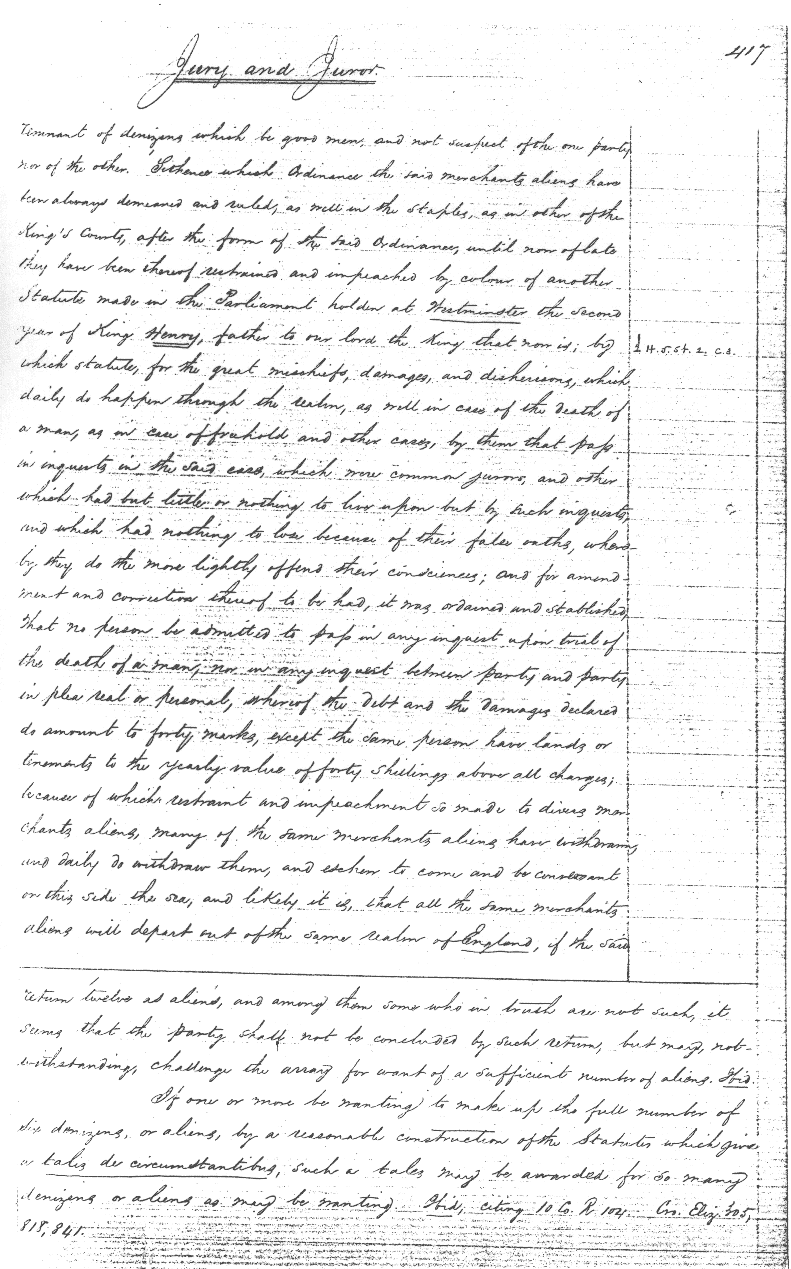 417
Jury and Juror.
timnant of denizens which be good men, and not suspect of the one party
nor of the other. Sithence which Ordinance the said merchants aliens have
been always demeaned and ruled, as well in the Staples, as in other of the
King's Courts, after the form of the said Ordinance, until now of late
they have been thereof restrained and impeached by colour of another
Statute made in the Parliament holden at Westminster the second
year of King Henry, father to our lord the King that now is; by
2 H. 5. St. 2. c. 3.
which statute, for the great mischiefs, damages, and disherisons, which
daily do happen through the realm, as well in case of the death of
a man, as in case of freehold and other cases, by them that pass
in inquests in the said cases, which were common jurors, and other
which had but little or nothing to live upon but by such inquests,
and which had nothing to lose because of their false oaths, where-
by they do the more lightly offend their consciences; and for amend-
ment and correction thereof to be had, it was ordained and stablished,
that no person be admitted to pass in any inquest upon trial of
the death of a man, nor in any inquest between party and party
in plea real or personal, whereof the debt and the damages declared
do amount to forty marks, except the same person have lands or
tenements to the yearly value of forty shillings above all charges;
because of which restraint and impeachment so made to divers mer-
chants aliens, many of the same merchants aliens have withdrawn,
and daily do withdraw them, and eschew to come and be conversant
on this side the sea, and likely it is, that all the same merchants
aliens will depart out of the same realm of England, if the said
return twelve as aliens, and among them some who in truth are not such, it
seems that the party shall not be concluded by such return, but may, not-
withstanding, challenge the array for want of a sufficient number of aliens. Ibid.
If one or more be wanting to make up the full number of
six denizens, or aliens, by a reasonable construction of the Statutes which give
a tales de circumstantibus, such a tales may be awarded for so many
denizens or aliens as may be wanting. Ibid, citing 10 Co. R. 104. Cro. Eliz. 305,
818, 841.